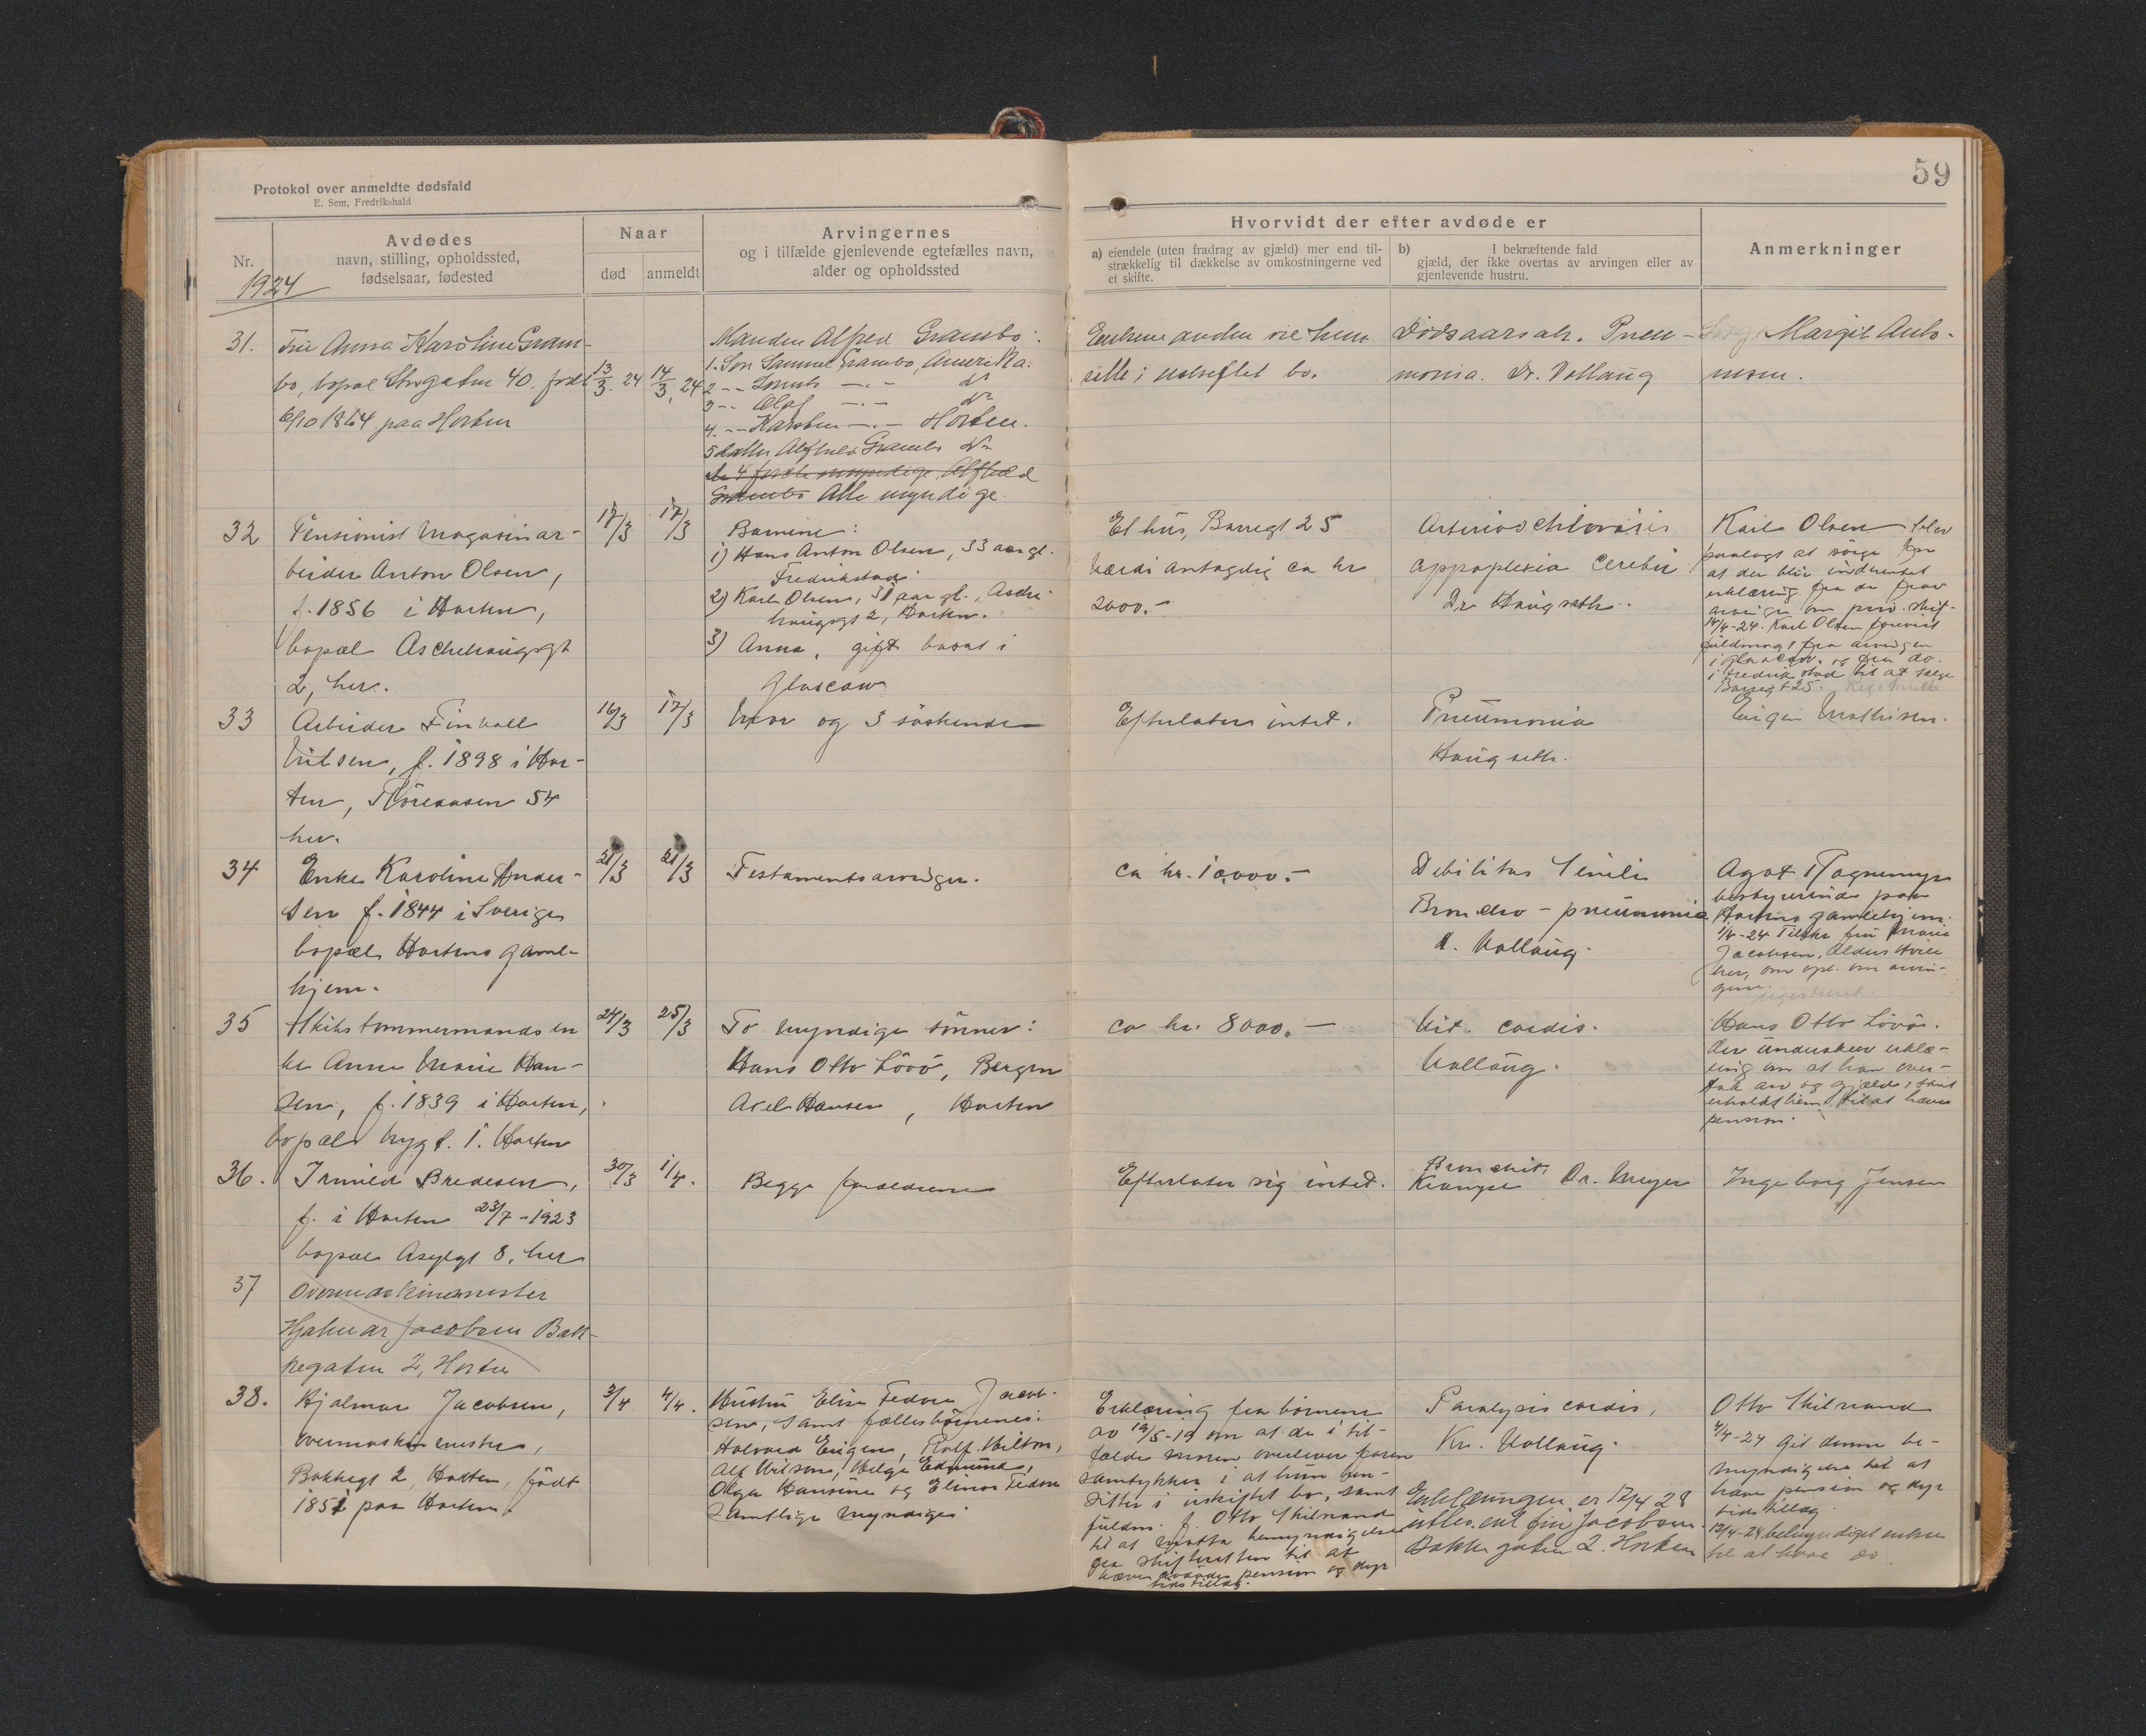 59
Protokol over anmeldte dødsfald
E. Sem, Fredrikshald
Nr.
Avdødes
navn, stilling, opholdssted,
fødselsaar, fødested
Naar
død
anmeldt
Arvingernes
og i tilfælde gjenlevende egtefælles navn,
alder og opholdssted
Hvorvidt der efter avdøde er
a) eiendele (uten fradrag av gjæld) mer end til-
strækkelig til dækkelse av omkostningerne ved
et skifte.
b) I bekræftende fald
gjæld, der ikke overtas av arvingen eller av
gjenlevende hustru.
Anmerkninger
1924
31.
Fru Anna Karoline Gram-
bo, bopæl Storgaten 40. født
6/10 1864 paa Horten
13/3. 24
14/3. 24
Manden Alfred Grambo.
1. Søn Samuel Grambo, Amerika.
2 -- -.- do
3 -- Olaf -.- do
4. -- Karsten -.- Horten.
5 datter Grambo do
Grambo Alle myndige.
sitte i uskiftet bo.
Dødsaarsak. Pneu-
monia. Dr. Vollaug
Margit Anto-
nsen.
32
Pensionist magasinar-
beider Anton Olsen,
f. 1856 i Horten,
bopæl Aschehougsgt
2, her.
17/3
17/3
Barnene:
1) Hans Anton Olsen, 33 aar gl.
Fredrikstad
2) Karl Olsen, 31 aar gl., Asche-
hougsgt 2, Horten.
3) Anna, gift bosat i
Glascow
Et hus, Barregt 25
Værdi antagelig ca kr
2000.-
Arterioschlerosis
Appoplexia Cerebri
Dr Haugseth.
Karl Olsen blev
paalagt at sørge for
at der blir indhentet
erklæring fra de
arvinger om priv. skif-
14/4-24. Karl Olsen forevist
fuldmagt fra arvingen
i Glascow og fra do.
i Fredrikstad til at sælge
Barregt 25.
33
Arbeider Finvall
Nilsen, f. 1898 i Hor-
ten, Røreaasen 54
her.
16/3
17/3
Mor og 3 søskende
Efterlater intet.
Pneumonia
Haugseth.
Eugen Mathisen.
34
Enke Karoline Ander-
sen f. 1844 i Sverige
bopæl Hortens gamle-
hjem.
21/3
21/3
Testamentsarvinger.
ca kr. 10,000.-
Debilitas Senilis
Broncho-pneumonia
K. Vollaug.
Agot
bestyrerinde paa
Hortens gamlehjem.
1/4-24 Tilskr fru Marie
Jacobsen, Alders Hvile
her, om opl. om arvin-
gene.
registreret
35
Skibstømmermands en-
ke Anne Marie Han-
sen, f. 1839 i Horten,
bopæl Nygt. 1. Horten
24/3
25/3
To myndige sønner:
Hans Otto Lövö, Bergen
Axel Hansen, Horten
ca kr. 8000.-
Vit. cordis.
Vollaug.
Hans Otto Lövö.
der underskrev erklæ-
ring om at han over-
tok arv og gjæld, samt
pension.
36.
Irmild Bredesen,
f. i Horten 23/7-1923
bopæl Asylgt 8, her
30/3
1/4.
Begge forældrene
Efterlater sig intet.
Bronchit.
Krampe Dr. Meyer
Ingeborg Jensen
37
Overmaskinmester
Hjalmar Jacobsen Bak-
kegaten 2, Horten
38.
Hjalmar Jacobsen,
overmaskinmester,
Bakkegt 2, Horten, født
1851 paa Horten.
3/4
4/4.
Hustru Elise Fedora Jacob-
sen, samt fællesbørnene:
Halvard Eugen, Rolf Milton,
Alf Wilson, Helge Edmund,
Olga Hansine og Elinor Fedora
Samtlige myndige
Erklæring fra børnene
av 12/5-19 om at de i til-
fælde moren overlever faren
samtykker i at hun hen-
sitter i uskiftet bo, samt
fuldm. f. Otto Skilnand
til at motta bemyndigelse
fra skifteretten til at
hæve avdødes pension og dyr-
tidstillæg.
Paralysis cordis,
Kr. Vollaug.
Erklæringen er 12/4 28
utlev. enkefru Jacobsen
Bakkegaten 2. Horten
Otto Skilnand
4/4-24 git denne be-
myndigelse til at
hæve pension og dyr-
tidstillæg.
12/4-24 bemyndiget enken
til at hæve do.